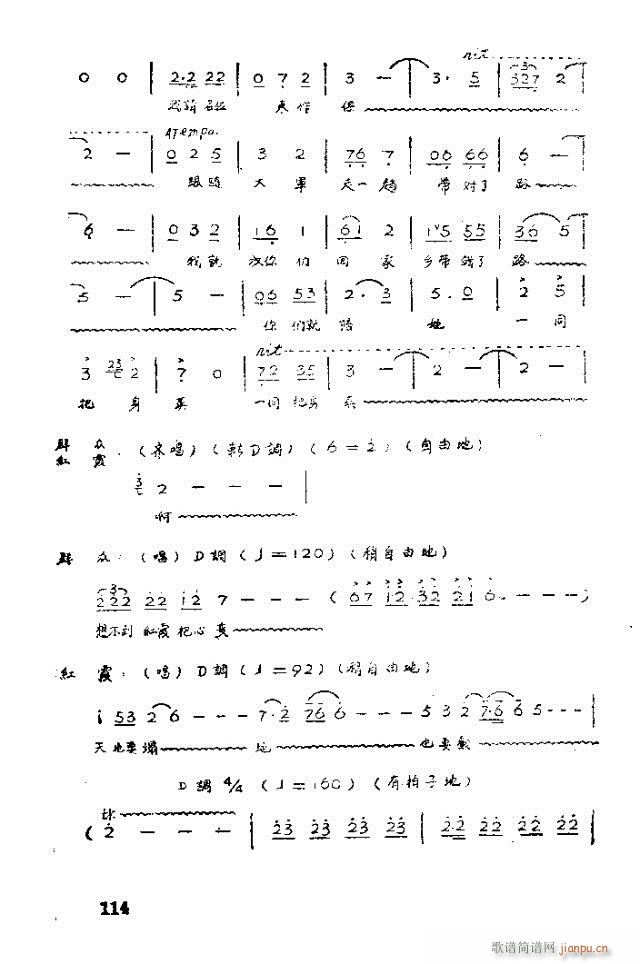 rit
0 0 | 2·2 22 | 0 7 2 | 3 - | 3· 5 | 327 2 |
ATempo.
2 - | 0 2 5 | 3 2 | 76 7 | 06 66 | 6 - |
跟随 大軍 走一趟 帶对了 路
6 - | 0 3 2 | 16 1 | 61 2 | 15 55 | 36 5 |
我就 次你们 回家 乡带錯了 路
5 - | 5 - | 06 53 | 2· 3 | 5. 0 | 2 5 |
你们就 陪 她 一同
rit
3 2 | 7 0 | 72 35 | 3 - | 2 - | 2 - |
把身葬 一同把身葬
群众 紅霞：（齐唱）（转D調）（6=2）（自由地）
2 - - - |
啊
群众：（唱）D調（♩=120）（稍自由地）
222 22 12 7 - - - （67 12 32 21 6 - - -）
想不到 紅霞把心变
紅霞：（唱）D調（♩=92）（稍自由地）
1 53 2 6 - - - 7· 2 76 6 - - - 5 3 2 7·6 6 5 - - -
天也要塌 地 也要裂
D調 4/4（♩=160）（有拍子地）
（2 - - - | 23 23 23 23 | 22 22 22 22 |
114
歌谱简谱网 jianpu.cn